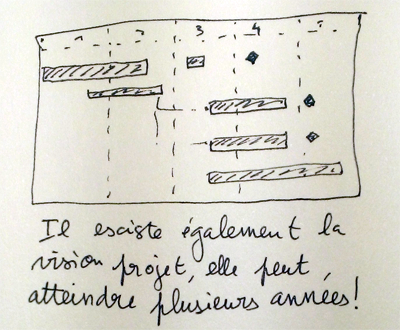 1 2 3 4 5
Il existe également la
vision projet, elle peut,
atteindre plusieurs années!